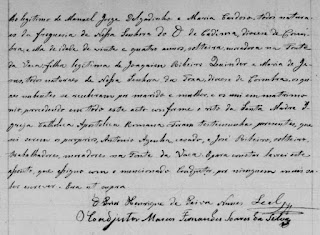 lho legitimo de Manoel Jorge Delgadinho e Maria Cardosa, todos naturaes
da freguesia de Nossa Senhora do Ó de Cadima, diocese de Coim-
bra, ella de idade de vinte e quatro annos, solteira moradora na Fonte
da Vaca, filha legitima de Joaquim Ribeiro e Maria de Je-
sus, todos naturaes de Nossa Senhora da Tocha, diocese de Coimbra, os quaes
nubentes se receberam por marido e mulher, e os uni em matrimo-
nio, procedendo em todo este acto conforme o rito da Santa Madre I-
greja Catholica Apostolica Romana. Foram testemunhas presentes, que
sei serem os proprios, Antonio, casado, e José Ribeiro, solteiro,
trabalhadores, moradores na Fonte da Vaca. E para constar lavrei este
assento, que assigno com o mencionado Coadjutor por ninguem mais sa-
ber escrever. Era ut supra.
Henrique de Paiva Nunes Leal
O Coadjutor Manoel Fernandes Soares da Silva